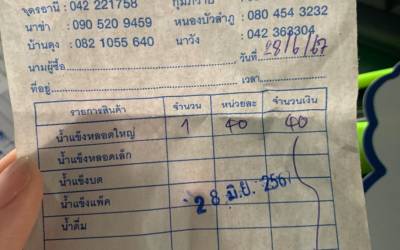 อุดรธานี : 042 221758 กุมภวาปี
นาข่า : 090 520 9459 หนองบัวลำภู : 080 454 3232
บ้านดุง : 082 1055 640 นาวัง : 042 363304
นามผู้ซื้อ วันที่ 28/6/67
ที่อยู่ เวลา
รายการสินค้า จำนวน หน่วยละ จำนวนเงิน
น้ำแข็งหลอดใหญ่ 1 40 40
น้ำแข็งหลอดเล็ก
น้ำแข็งบด
น้ำแข็งแพ็ค
28 มิ.ย. 2567
น้ำดื่ม